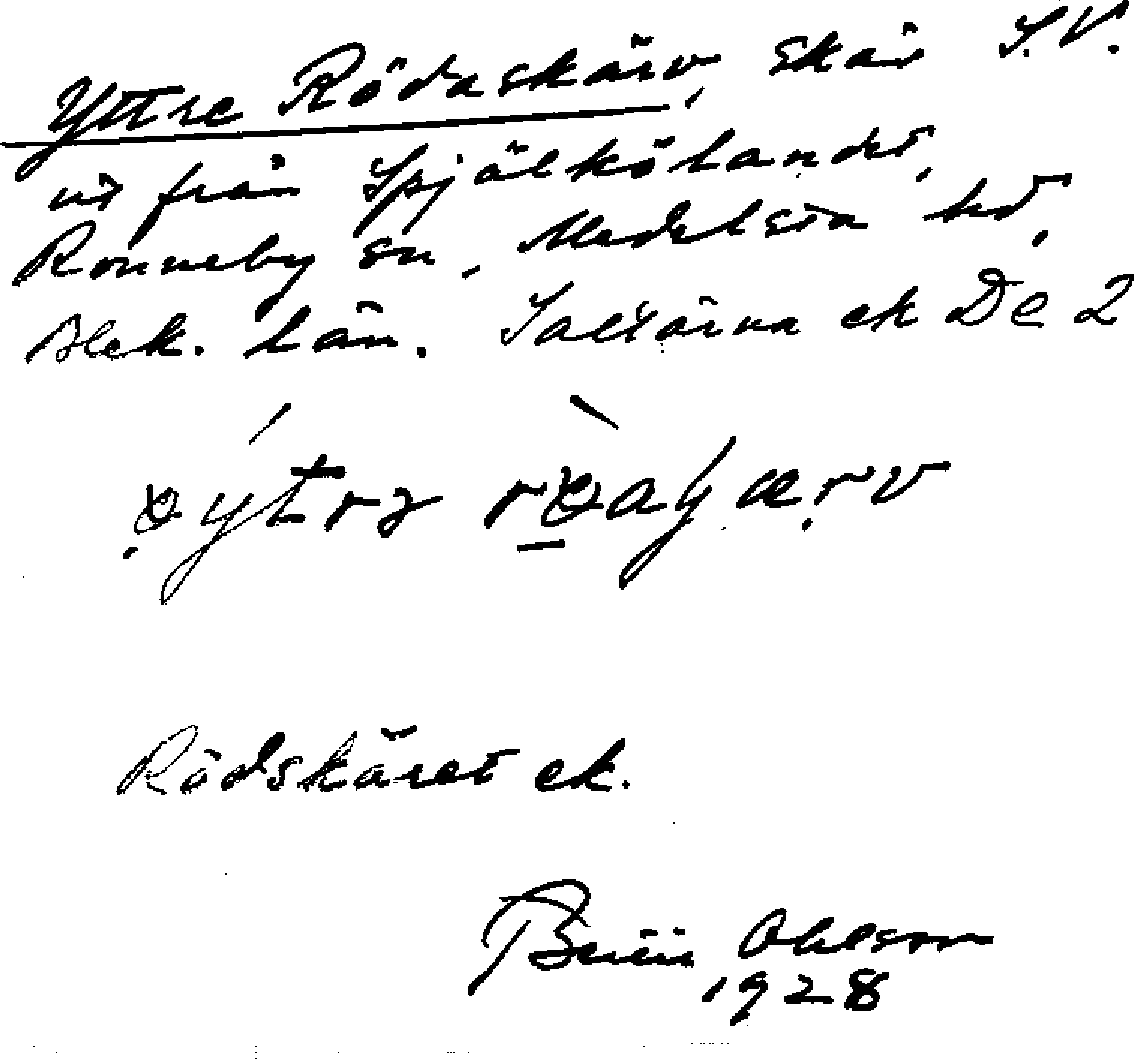 Yttre Rödaskärv, skär S.V.
ut från Spjälkölandet,
Ronneby sn, Medelsta hd,
Blek. län. Saltärna ek De 2
Rödskäret ek.
Ohlson
1928